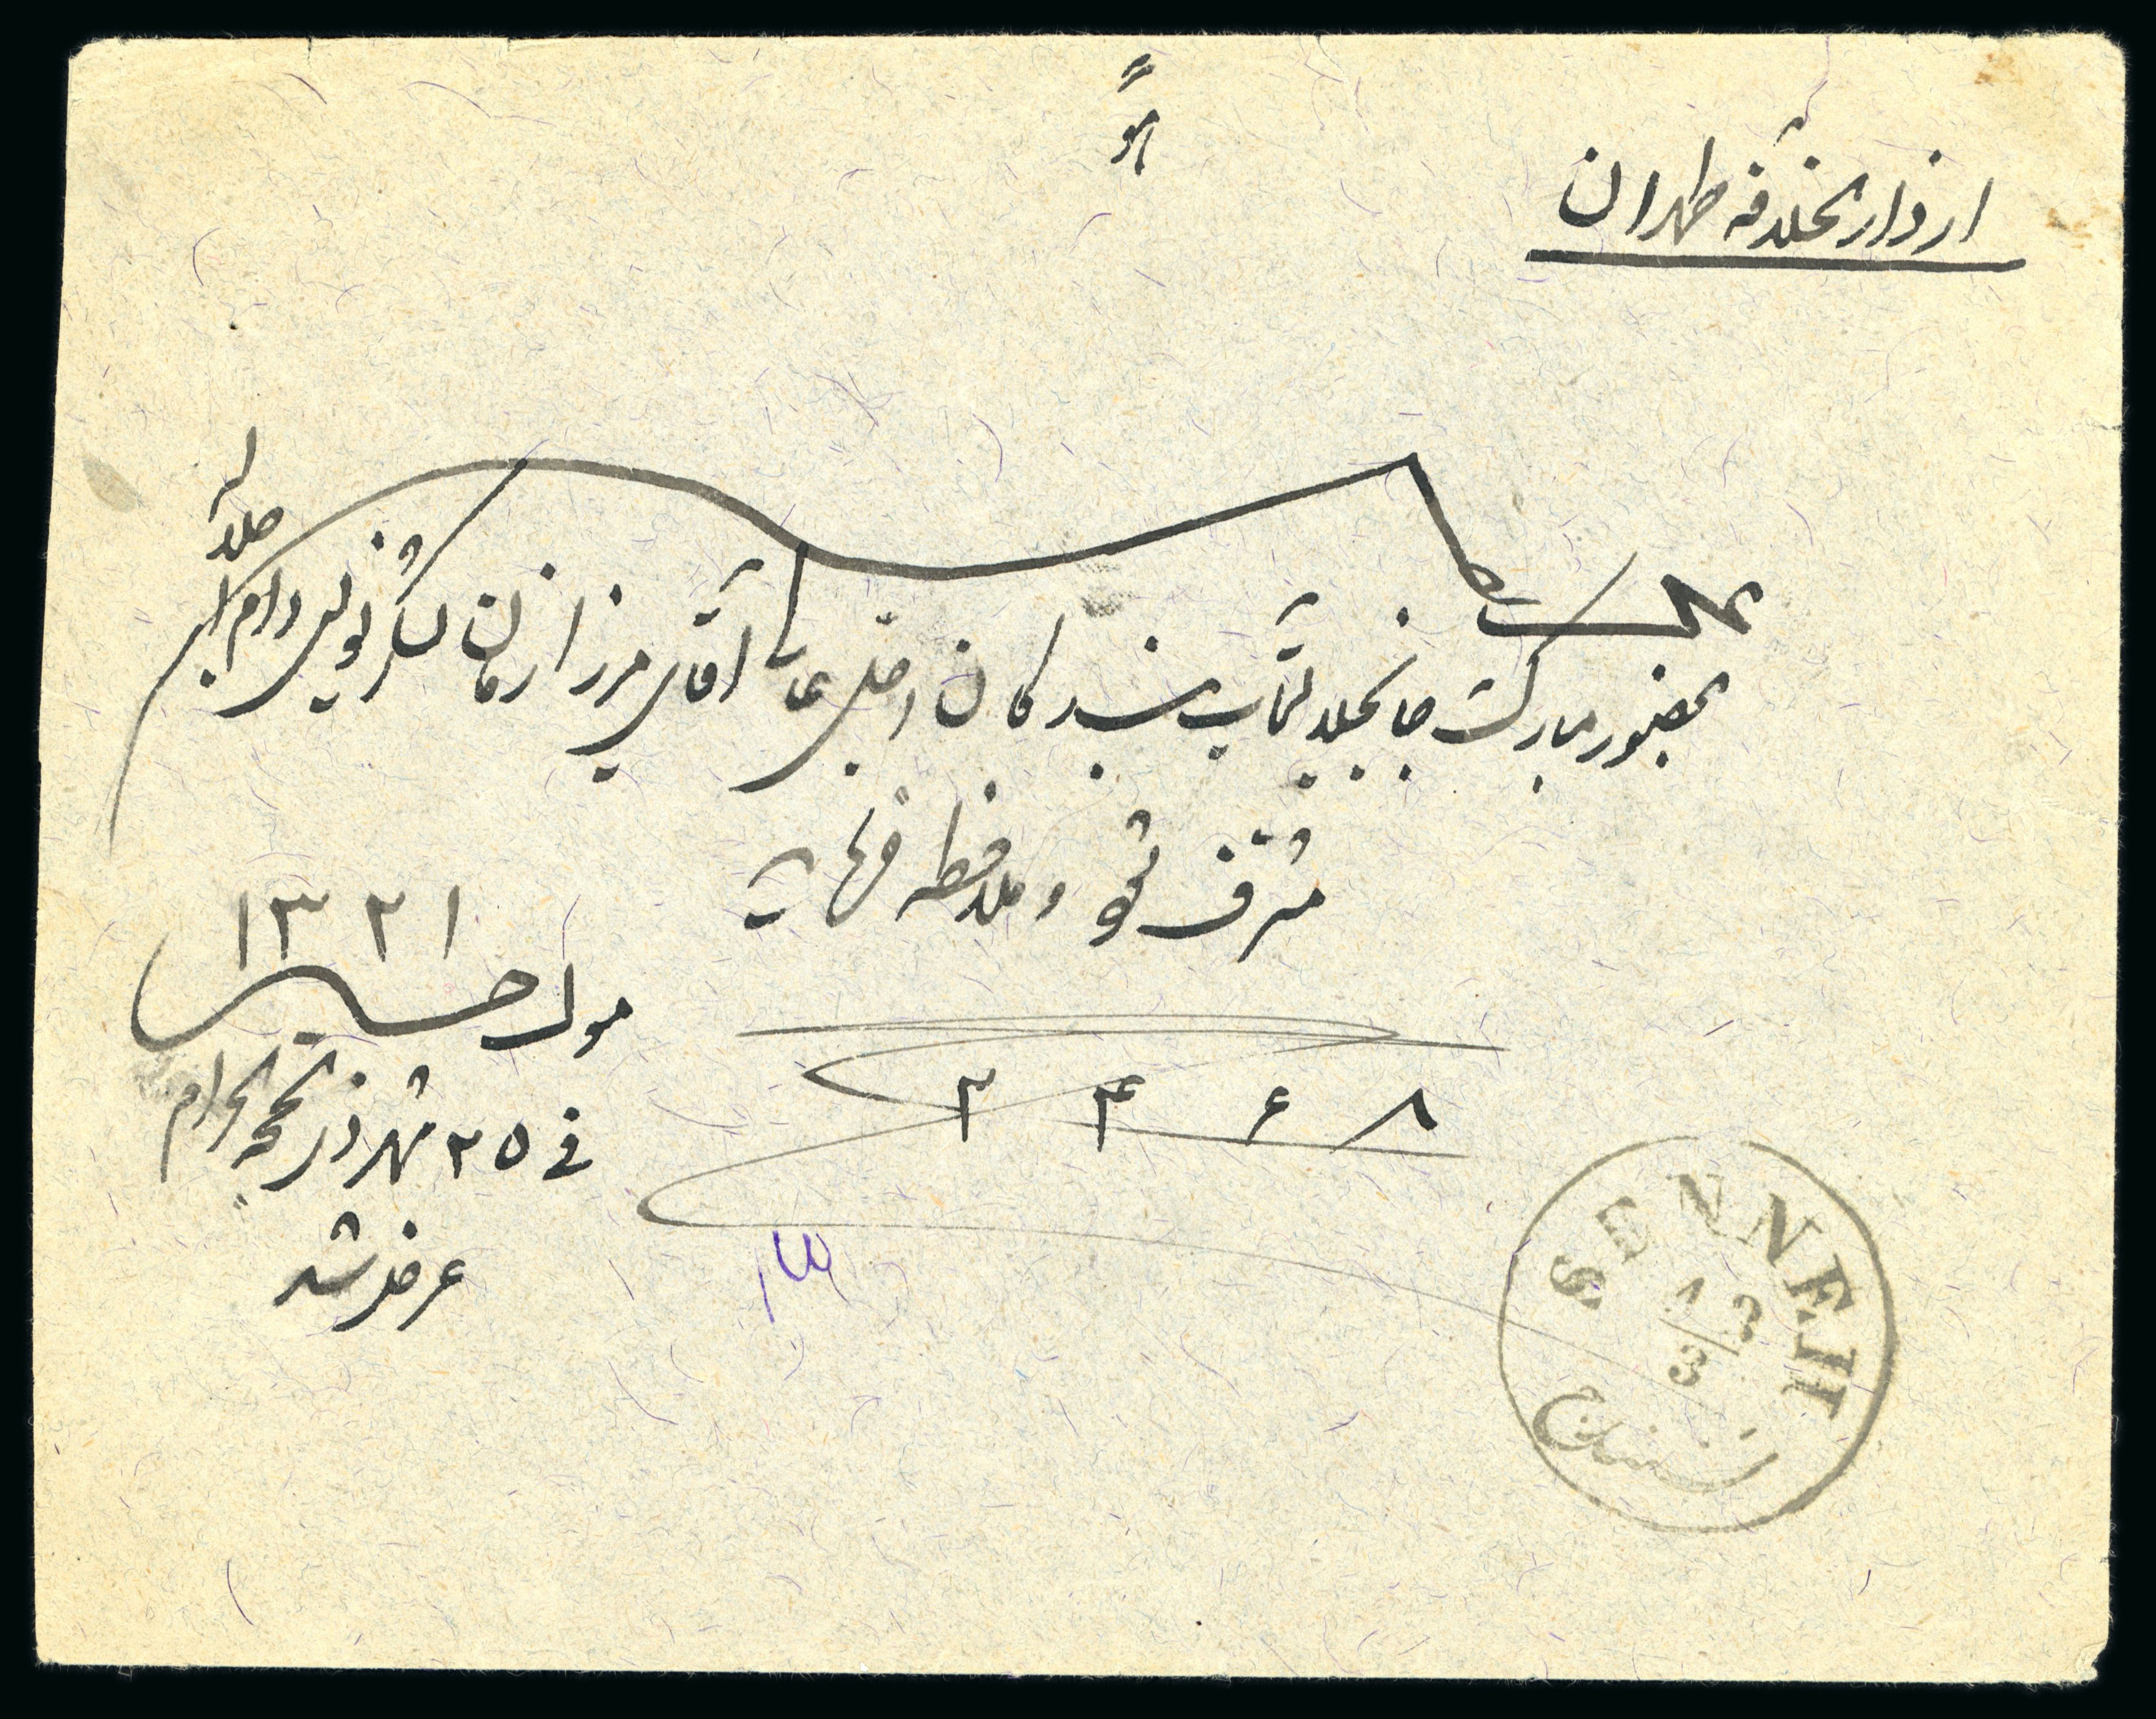 هو
از دارالخلافه طهران
سنندج
بحضور مبارک جنابجلالتمآب بندگان اجل عالی آقای میرزا زمان لشکرنویس دام اجلاله
مشرف شود و ملاحظه فرمایند
۱۳۲۱
۲۴۶۸
فی ۲۵ شهر ذیحجه الحرام
عرض شد
SENNEH
سنندج